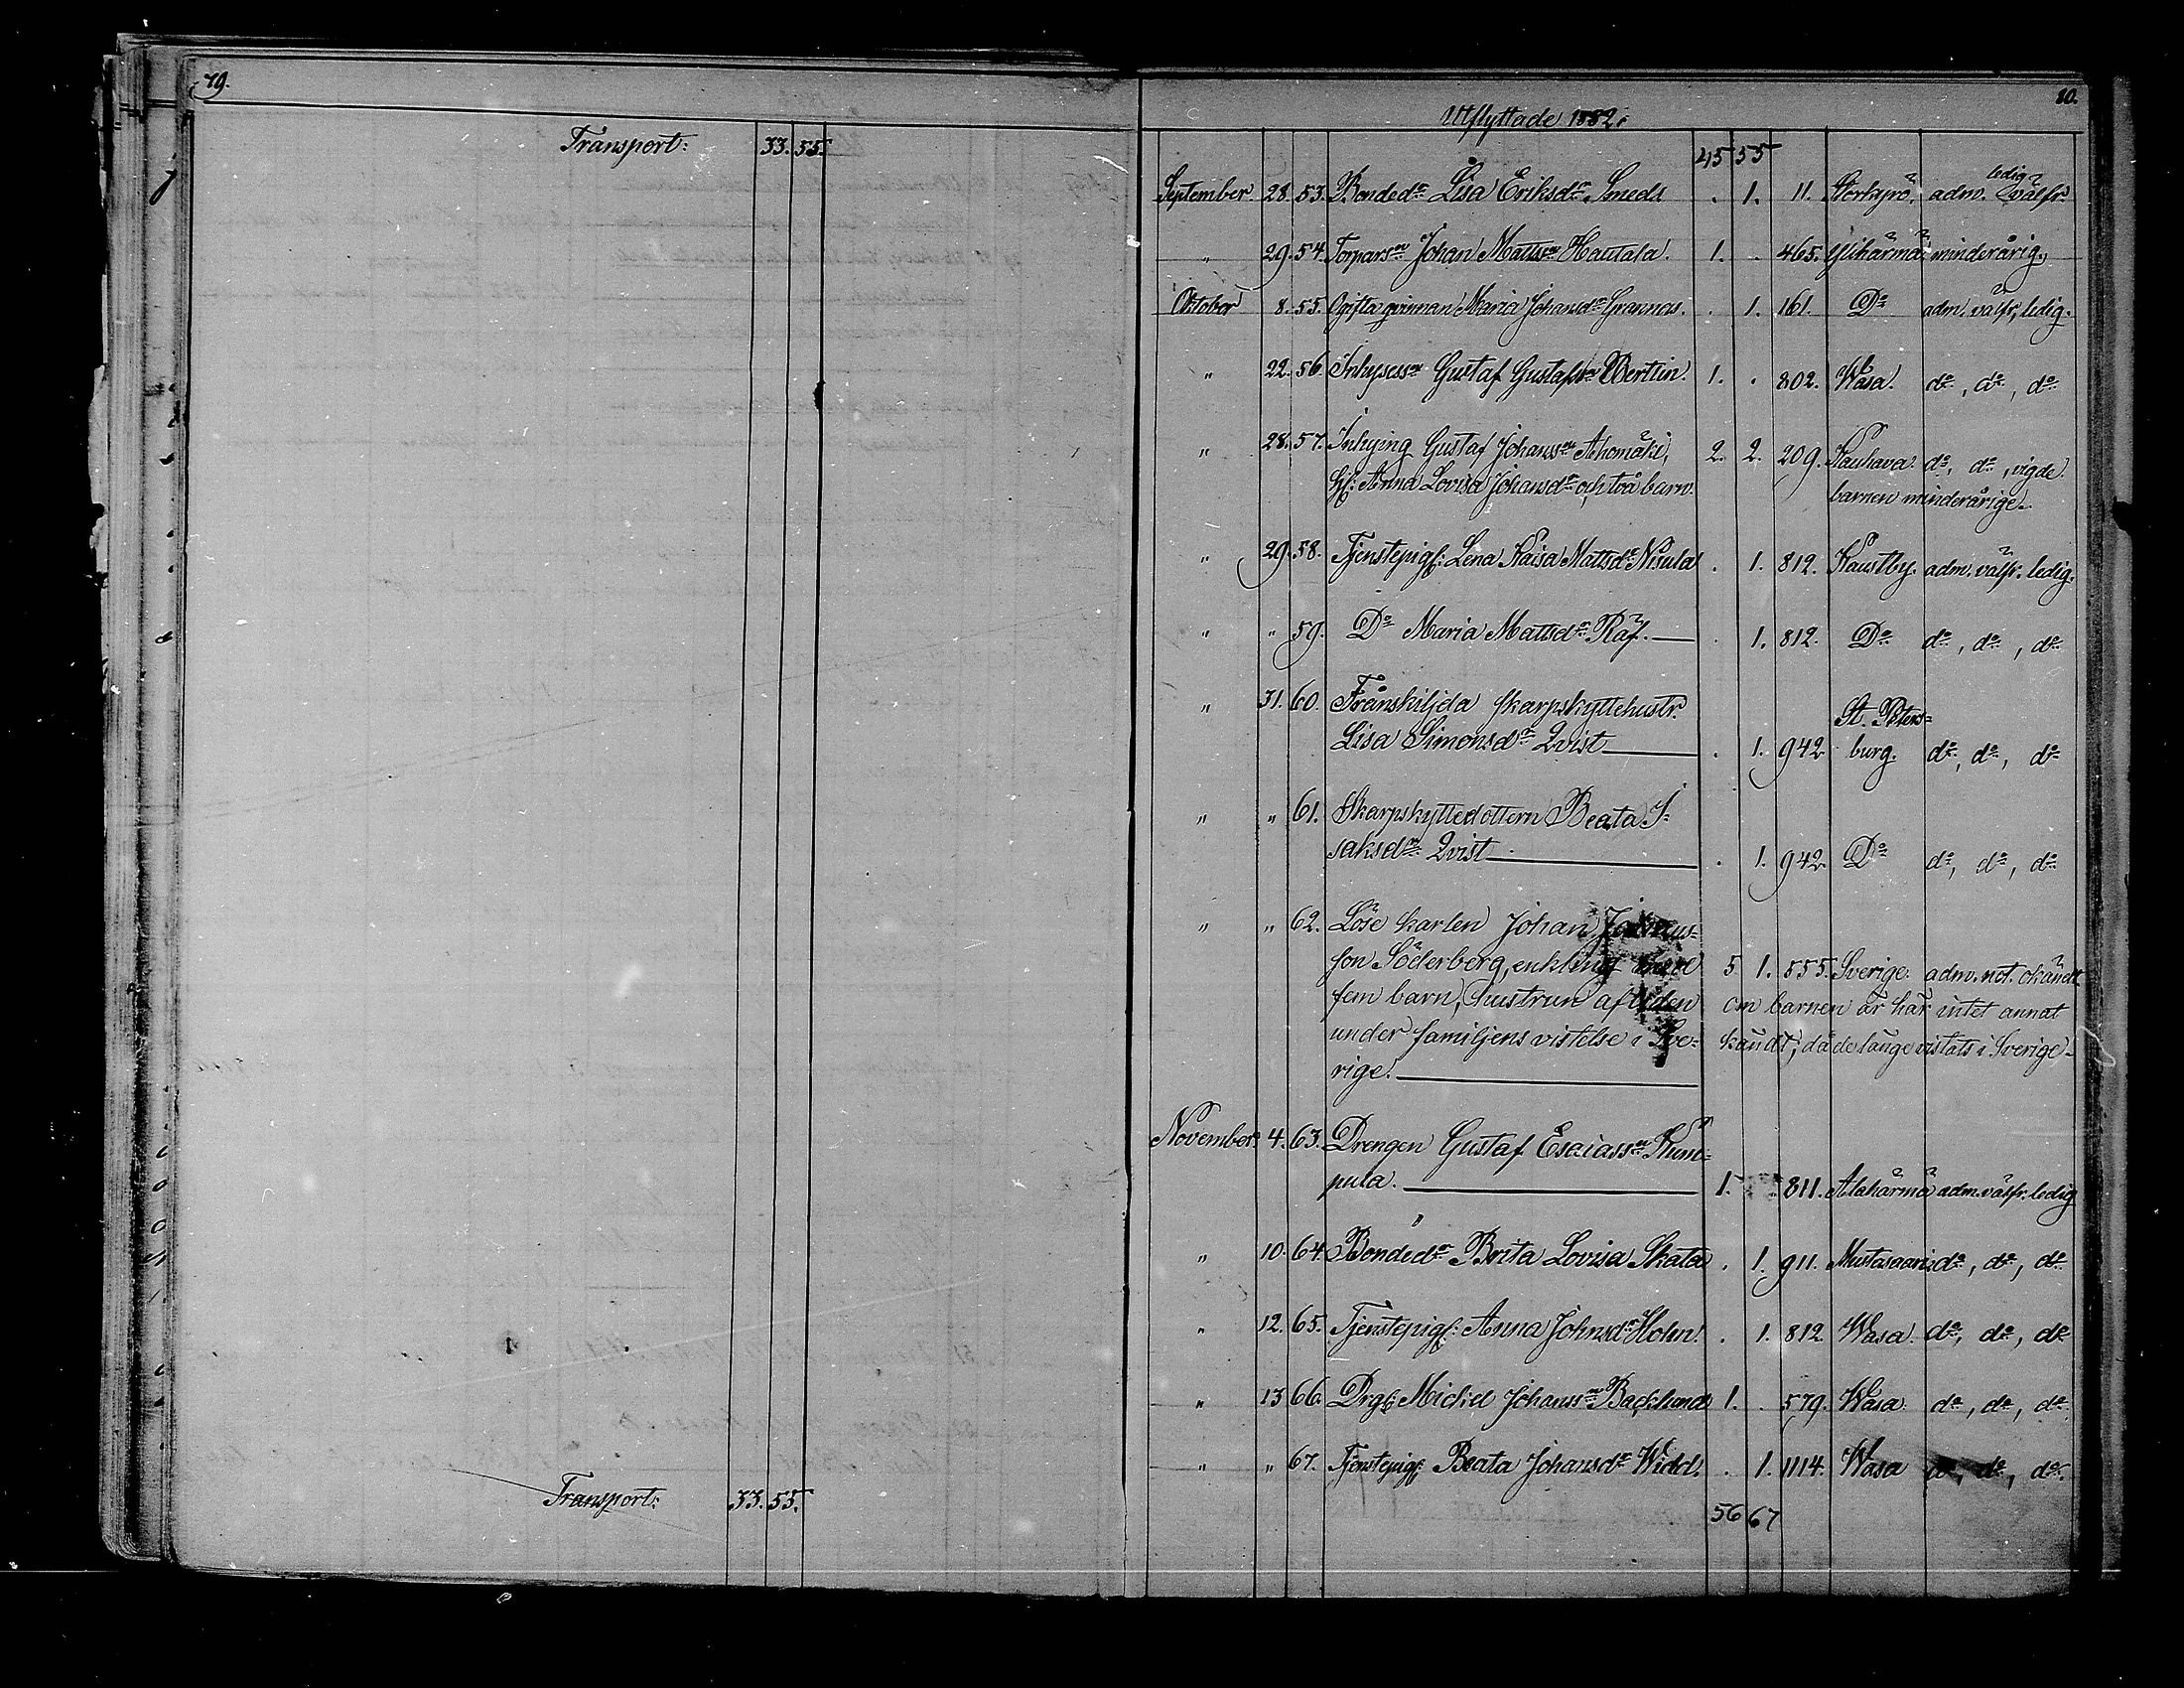 79.
Transport: 33. 55.
Transport: 33. 55.
80.
Utflyttade 1882.
45 55
September 28. 53. Bondedr Lisa Eriksdr Smeds . 1. 11. Storkyrö. adm. ledig välfr.
" 29. 54. Torparsn Johan Mattsn Hautala. 1. . 465. Ylihärmä minderårig.
Oktober 8. 55. Ogifta qvinnan Maria Johansdr Grannas. . 1. 161. Do adm. välfr, ledig.
" 22. 56. Inhysessn Gustaf Gustafsn Wertiin. 1. . 802. Wasa. do, do, do
" 28. 57. Inhysing Gustaf Johanssn Ahomäki, 2. 2. 209. Kauhava. do, do, vigde
H: Anna Lovisa Johansdr och två barn. barnen minderårige.
" 29. 58. Tjenstepig: Lena Kaisa Mattsdr Nisula . 1. 812. Kaustby. adm. välfr. ledig.
" " 59. Do Maria Mattsdr Räf. . 1. 812. Do do, do, do
" 31. 60. Frånskiljda skarpskyttehustr. St. Peters=
Lisa Simonsdr Qvist . 1. 942 burg. do, do, do
" " 61. Skarpskyttedottern Beata I=
saksdr Qvist . 1. 942 Do do, do, do
" " 62. Löse karlen Johan Johans=
son Söderberg, enkling med 5 1. 555. Sverige. adm. not. okändt
fem barn, hustrun afliden om barnen är här intet annat
under familjens vistelse i Sve= kändt, då de länge vistats i Sverige.
rige.
November 4. 63. Drengen Gustaf Esaiassn Kum=
pula. 1. . 811. Alahärmä adm. välfr. ledig
" 10. 64. Bondedr Brita Lovisa Skata . 1. 911. Mustasaari do, do, do
" 12. 65. Tjenstepig: Anna Johnsdr Holm. . 1. 812 Wasa. do, do, do
" 13 66. Drg: Mickel Johanssn Backlund 1. . 579. Wasa do, do, do
" " 67. Tjenstepig: Beata Johansdr Widd. . 1. 1114. Wasa do, do, do.
56 67